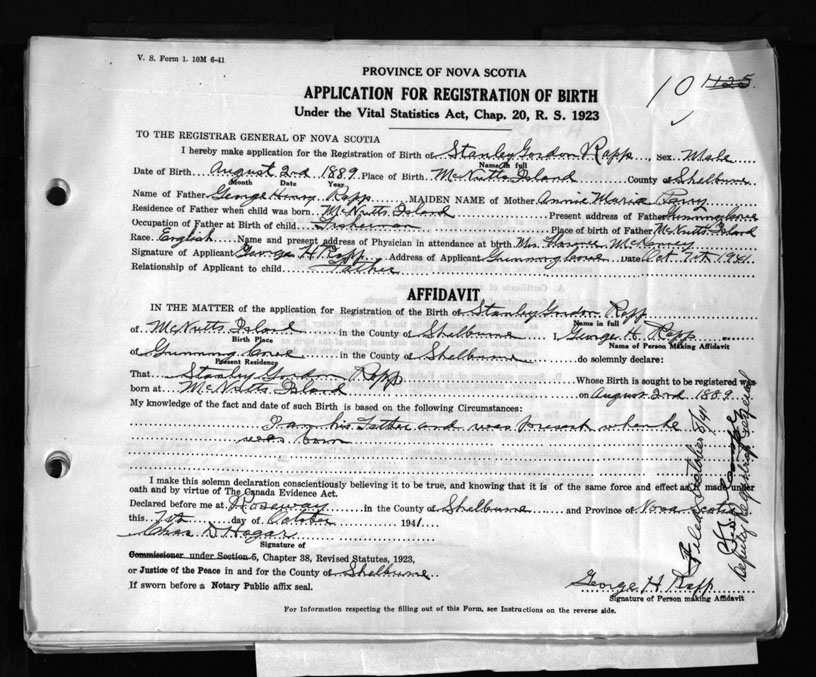 V. S. Form 1. 10M 6-41
10 425
PROVINCE OF NOVA SCOTIA
APPLICATION FOR REGISTRATION OF BIRTH
Under the Vital Statistics Act, Chap. 20, R. S. 1923
TO THE REGISTRAR GENERAL OF NOVA SCOTIA
I hereby make application for the Registration of Birth of Stanley Gordon Rapp, Sex Male
Name in full
Date of Birth August 2nd 1889 Place of Birth McNutts Island County of Shelburne
Month Date Year
Name of Father George Henry Rapp MAIDEN NAME of Mother Annie Maria Perry
Residence of Father when child was born McNutts Island Present address of Father Gunning Cove
Occupation of Father at Birth of child Fisherman Place of birth of Father McNutts Island
Race English Name and present address of Physician in attendance at birth Mrs. McKenney
Signature of Applicant George H. Rapp Address of Applicant Gunning Cove Date Oct 7th 1941
Relationship of Applicant to child Father
AFFIDAVIT
IN THE MATTER of the application for Registration of the Birth of Stanley Gordon Rapp
Name in full
of McNutts Island in the County of Shelburne I, George H. Rapp
Birth Place Name of Person Making Affidavit
of Gunning Cove in the County of Shelburne do solemnly declare:
Present Residence
That Stanley Gordon Rapp Whose Birth is sought to be registered was
born at McNutts Island on August 2nd 1889
My knowledge of the fact and date of such Birth is based on the following Circumstances:
I am his Father and was present when he
was born
I make this solemn declaration conscientiously believing it to be true, and knowing that it is of the same force and effect as if made under
oath and by virtue of The Canada Evidence Act.
Declared before me at Roseway in the County of Shelburne and Province of Nova Scotia
this 7th day of October 1941
Chas D Hogar
Signature of
Commissioner under Section 5, Chapter 38, Revised Statutes, 1923,
or Justice of the Peace in and for the County of Shelburne
If sworn before a Notary Public affix seal.
George H Rapp
Signature of Person making Affidavit
For Information respecting the filling out of this Form, see Instructions on the reverse side.
Filed October 8/41
Deputy Registrar General